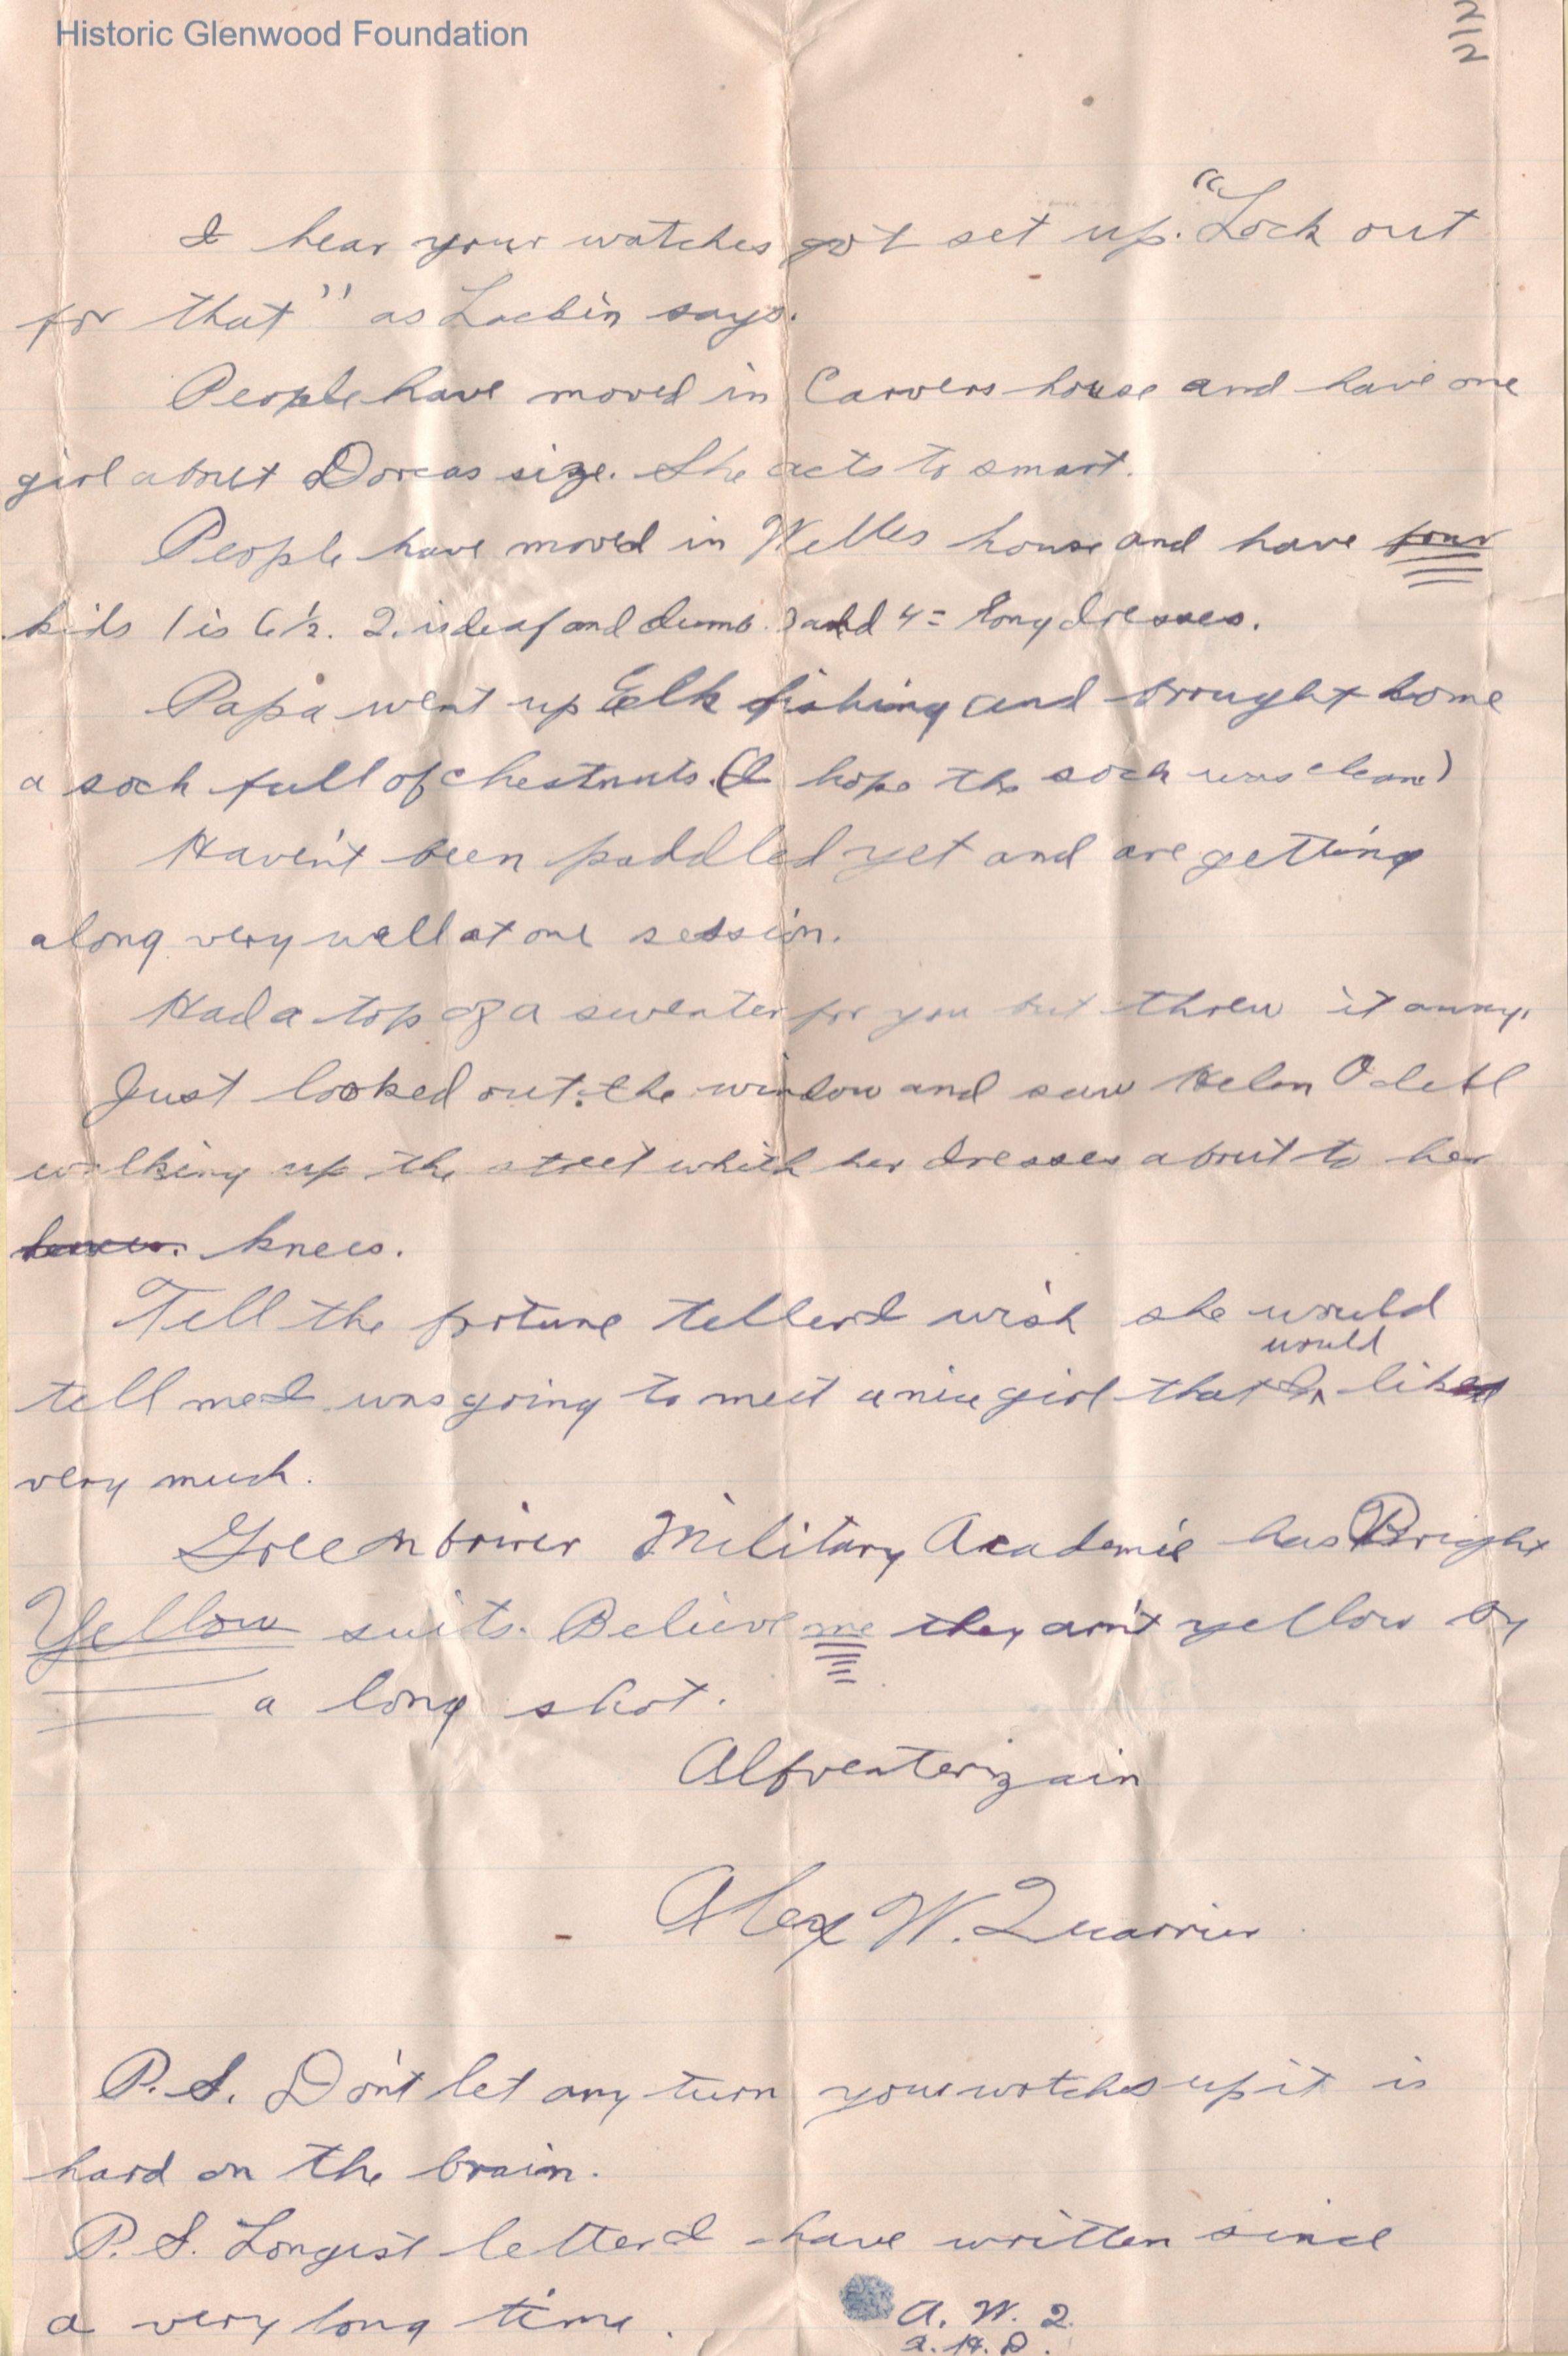 Historic Glenwood Foundation
2/2
I hear your watches got set up. "Lock out
for that" as says.
People have moved in Carvers house and have one
girl about Dorcas size. She acts to smart.
People have moved in house and have four
kids 1 is 6½. 2. is deaf and dumb. 3 and 4 = long dresses.
Papa went up Elk fishing and brought home
a sock full of chestnuts. (I hope the sock was clean)
Haven't been paddled yet and are getting
along very well at one session.
Had a top of a sweater for you but threw it away.
Just looked out the window and saw Helen
walking up the street whith her dresses about to her
knees.
Tell the fortune teller I wish she would
tell me I was going to meet a nice girl that I would like
very much.
Greenbrier Military Academie has Bright
Yellow suits. Believe me they ain't yellow by
a long shot.
Alex W. Quarrier
P.S. Don't let any turn your watches up it is
hard on the brain.
P.S. Longest letter I have written since
a very long time.
A. W. Q.